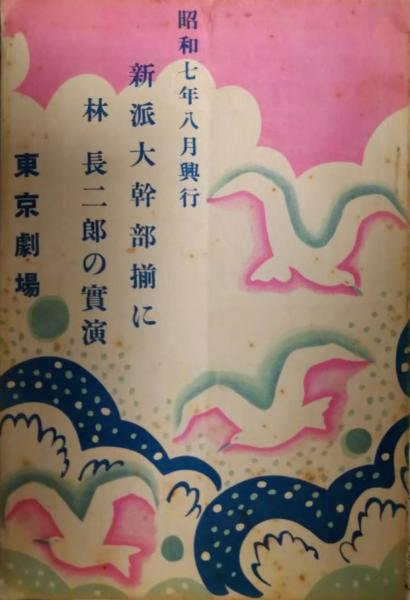 昭和七年八月興行
新派大幹部揃に
林長二郎の實演
東京劇場